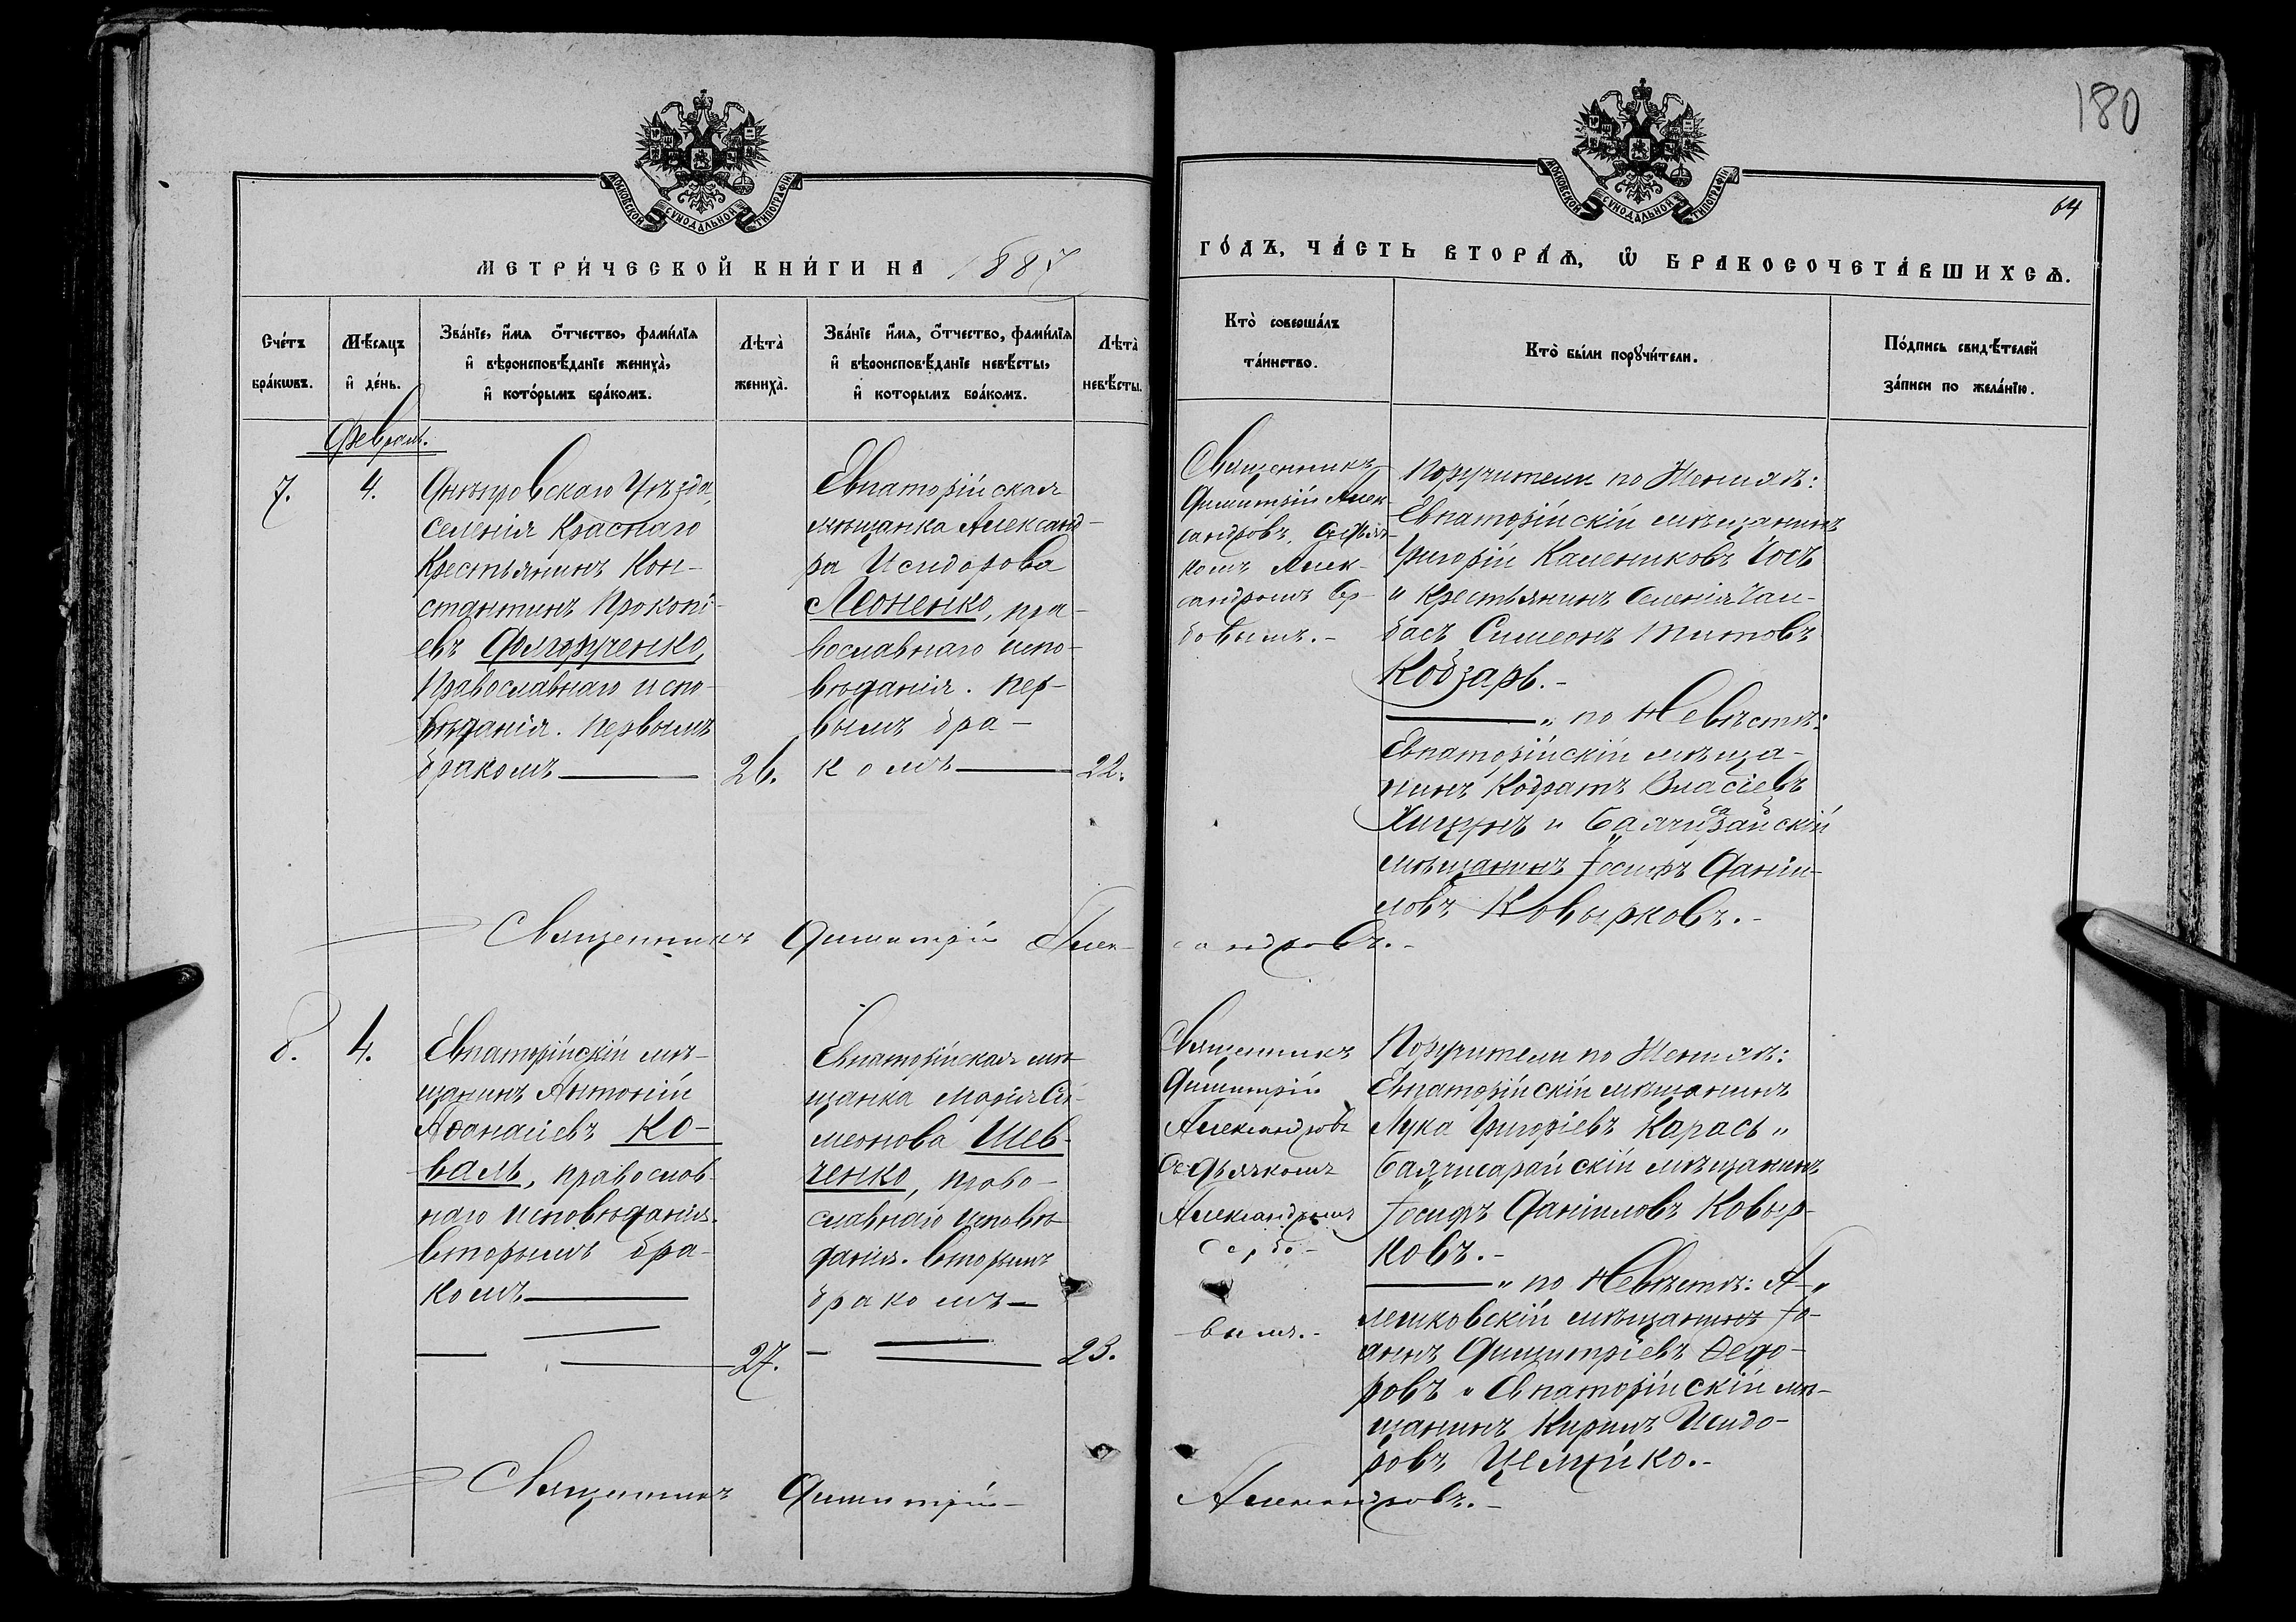 180
64
МОСКОВСКОЙ СУНОДАЛЬНОЙ ТИПОГРАФІИ
МОСКОВСКОЙ СУНОДАЛЬНОЙ ТИПОГРАФІИ
МЕТРИ́ЧЕСКОЙ КНИ́ГИ НА 1887
ГО́ДЪ, ЧА́СТЬ ВТОРА́Ѧ, Ѽ БРАКОСОЧЕТА́ВШИХСѦ.
Сче́тъ бра́кѡвъ.
Мѣ́сяцъ и҆ де́нь.
Зва́нїе, и҆́мя о҆́тчество, фами́лїя
и҆ вѣроисповѣ́данїе жениха̀,
и҆ кото́рымъ бра́комъ.
Лѣта̀ жениха̀.
Зва́нїе и҆́мя, о҆́тчество, фами́лїя
и҆ вѣроисповѣ́данїе невѣ́сты,
и҆ которымъ бра́комъ.
Лѣта̀ невѣ́сты.
Кто̀ соверша́лъ
та́инство.
Кто̀ бы́ли порꙋчи́тели.
По́дпись свидѣ́телей
за́писи по жела́нїю.
Февраль.
7.
4.
Днѣпровскаго Уѣзда,
селенія Краснаго
Крестьянинъ Кон-
стантинъ Прокопі-
евъ
Православнаго испо-
вѣданія. Первымъ
бракомъ
26.
Евпаторійская
мѣщанка Александ-
ра Исидорова
Леоненко, пра-
вославнаго испо-
вѣданія. Пер-
вымъ бра-
комъ
22.
Священникъ
Димитрій Алек-
сандровъ, съ дьяч-
комъ Алек-
сандромъ Сер-
бовымъ.-
Поручители по Женихѣ:
Евпаторійскій мѣщанинъ
Григорій Калениковъ
и Крестьянинъ Селенія Чал-
басъ Симеонъ Титовъ
Кобзарь.-
" по Невѣстѣ:
Евпаторійскій мѣща-
нинъ Кодратъ Власіевъ
и Бахчисарайскій
мѣщанинъ Іосифъ Даніи-
ловъ Ковырковъ.-
Священникъ Димитрій Алек-
сандровъ.-
8.
4.
Евпаторійскій мѣ-
щанинъ Антоній
Аѳанасіевъ Ко-
валь, православ-
наго исповѣданія.
вторымъ бра-
комъ
27.
Евпаторійская мѣ-
щанка Марія Си-
меонова Шев-
ченко, Право-
славнаго исповѣ-
данія. Вторымъ
бракомъ
23.
Священникъ
Димитрій
Александровъ
съ дьячкомъ
Александромъ
Сербо-
вымъ.-
Поручители по Женихѣ:
Евпаторійскій мѣщанинъ
Лука Григоріевъ Карась и
Бахчисарайскій мѣщанинъ
Іосифъ Даніиловъ Ковыр-
ковъ.-
" по Невѣстѣ: А-
лешковскій мѣщанинъ Іо-
аннъ Димитріевъ Ѳедо-
ровъ и Евпаторійскій мѣ-
щанинъ Кирилъ Исидо-
ровъ
Священникъ Димитрій
Александровъ.-